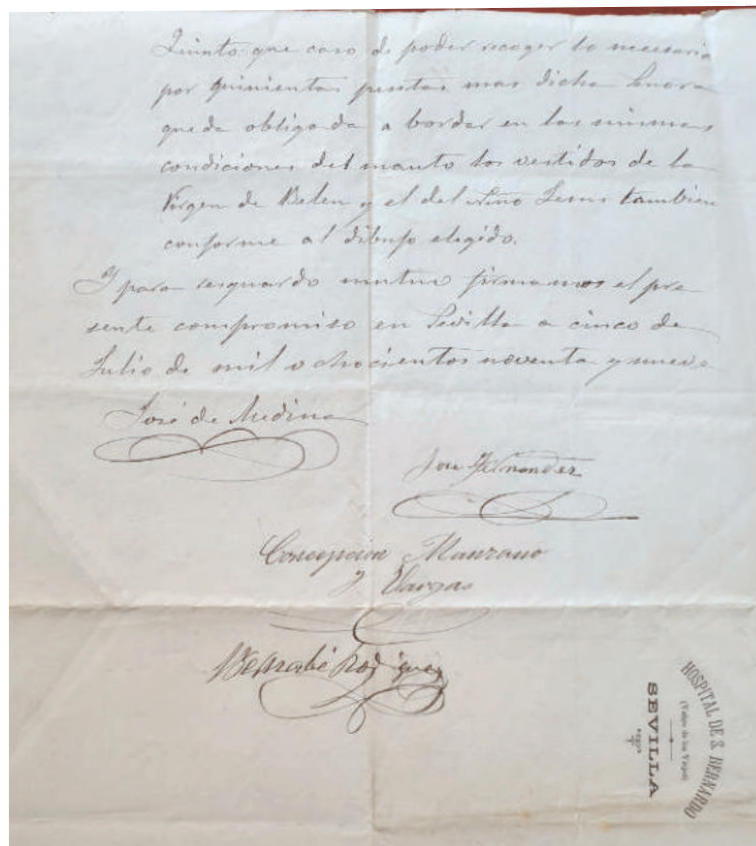 Quinto que caso de poder recoger lo necesario
por quinientas pesetas mas dicha Senora
queda obligada a bordar en las mismas
condiciones del manto los vestidos de la
Virgen de Belen y el del Niño Jesus tambien
conforme al dibujo elegido.
Y para resguardo mutuo firmamos el pre
sente compromiso en Sevilla a cinco de
Julio de mil ochocientos noventa y nueve
José de Medina
Jose Fernandez
Concepcion Manzano
y Vargas
Bernabé Rodriguez
HOSPITAL DE S. BERNARDO
(Vulgo de los Viejos)
SEVILLA